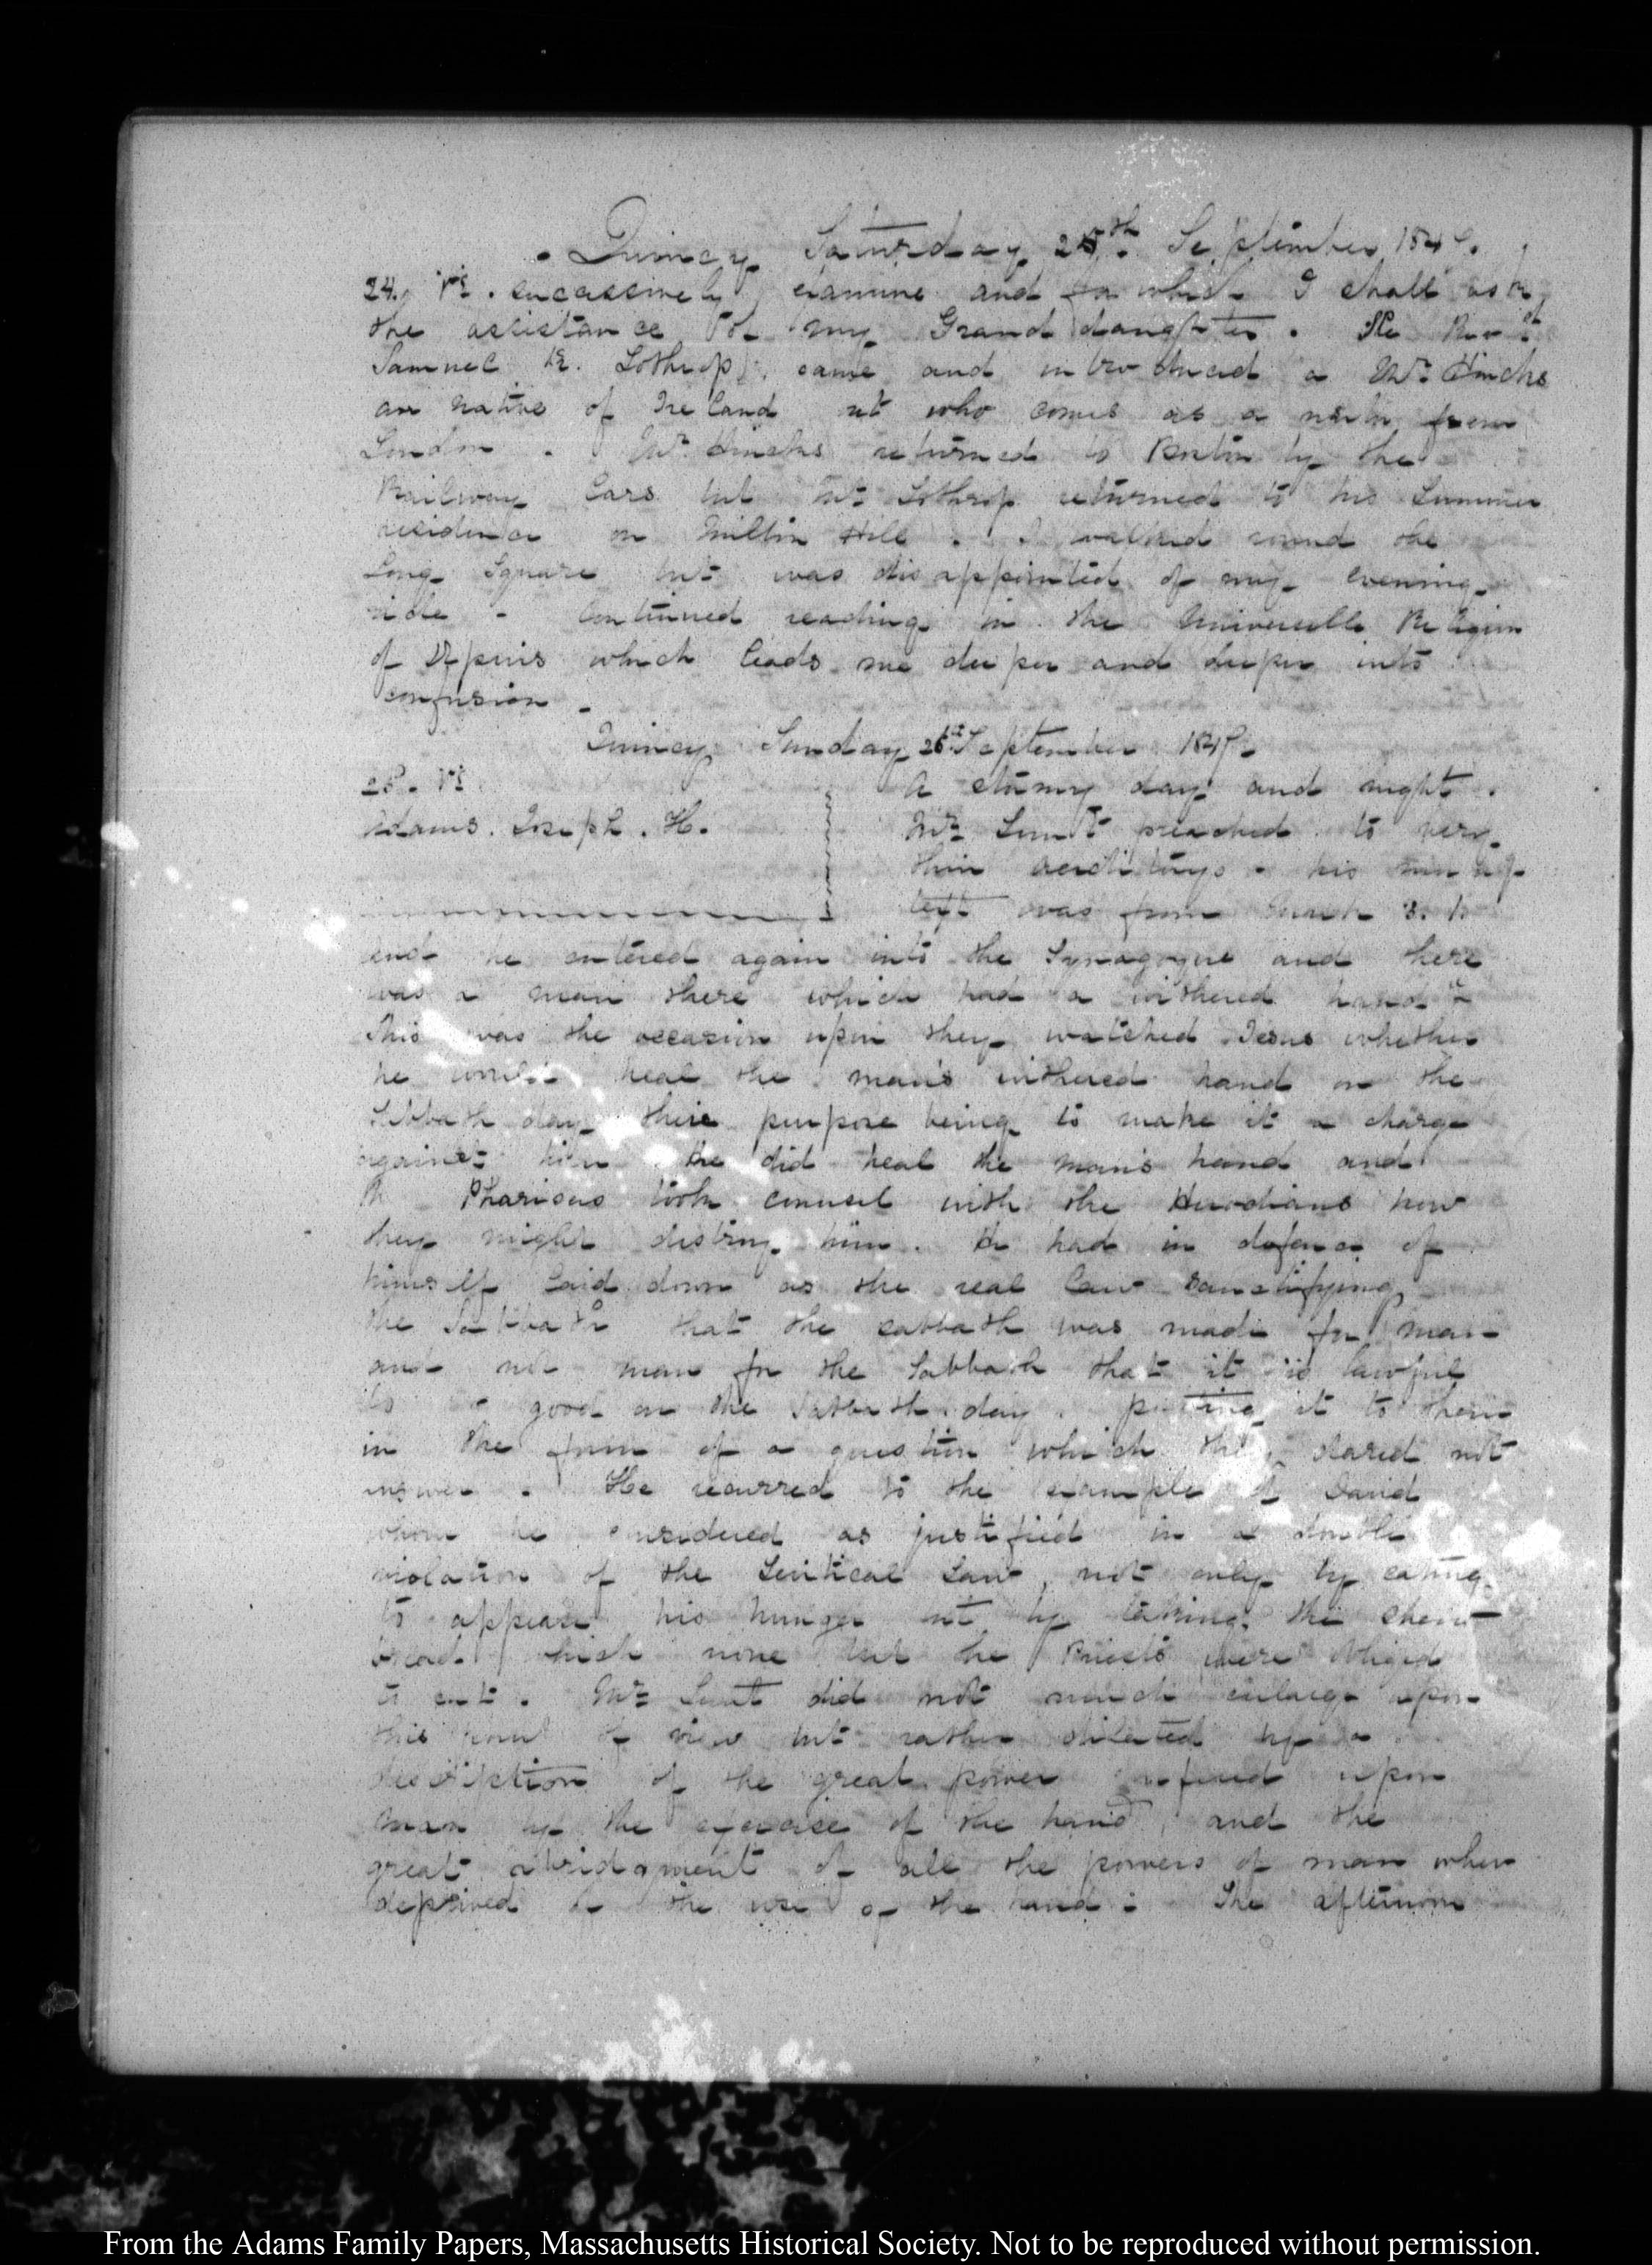 Quincy Saturday 25th. September 1847.
24. VI. successively examine and for which I shall ask
the assistance of my Grand daughter. The Revd.
Samuel K. Lothrop, came and introduced a Mr. Hincks
an native of Ireland but who comes as a from
London. Mr. Hincks returned to Boston by the
Railway Cars but Mr. Lothrop returned to his Summer
residence on Milton Hill. I walked round the
Long Square but was disappointed of my evening
ride - Continued reading in the Universelle Religion
of Dupuis which leads me deeper and deeper into
confusion -
Quincy Sunday 26th September 1847-
VI. A stormy day and night.
Adams. Joseph. H. Mr. Lunt preached to very
thin auditorys - his morng
text was from Mark 3. 1.
and he entered again into the Synagogue and there
was a man there which had a withered hand
This was the occasion upon they watched Jesus whether
he would heal the man's withered hand on the
Sabbath day their purpose being to make it a charge
against him. He did heal the man's hand and
the Pharisees took counsel with the Herodians how
they might destroy him. He had in defence of
himself laid down as the real law sanctifying
the Sabbath that the sabbath was made for man
and not man for the Sabbath that it is lawful
to do good on the Sabbath day. putting it to them
in the form of a question which they dared not
answer. He recurred to the example of David
whom he considered as justified in a double
violation of the Levitical Law, not only by eating
to appease his hunger but by taking the shew
bread which none but the Priests were
to eat. Mr. Lunt did not much enlarge upon
this point of view but rather dilated by a
description of the great power conferred upon
man by the exercise of the hand, and the
great abridgment of all the powers of man when
deprived of the use of the hand: The afternoon
From the Adams Family Papers, Massachusetts Historical Society. Not to be reproduced without permission.